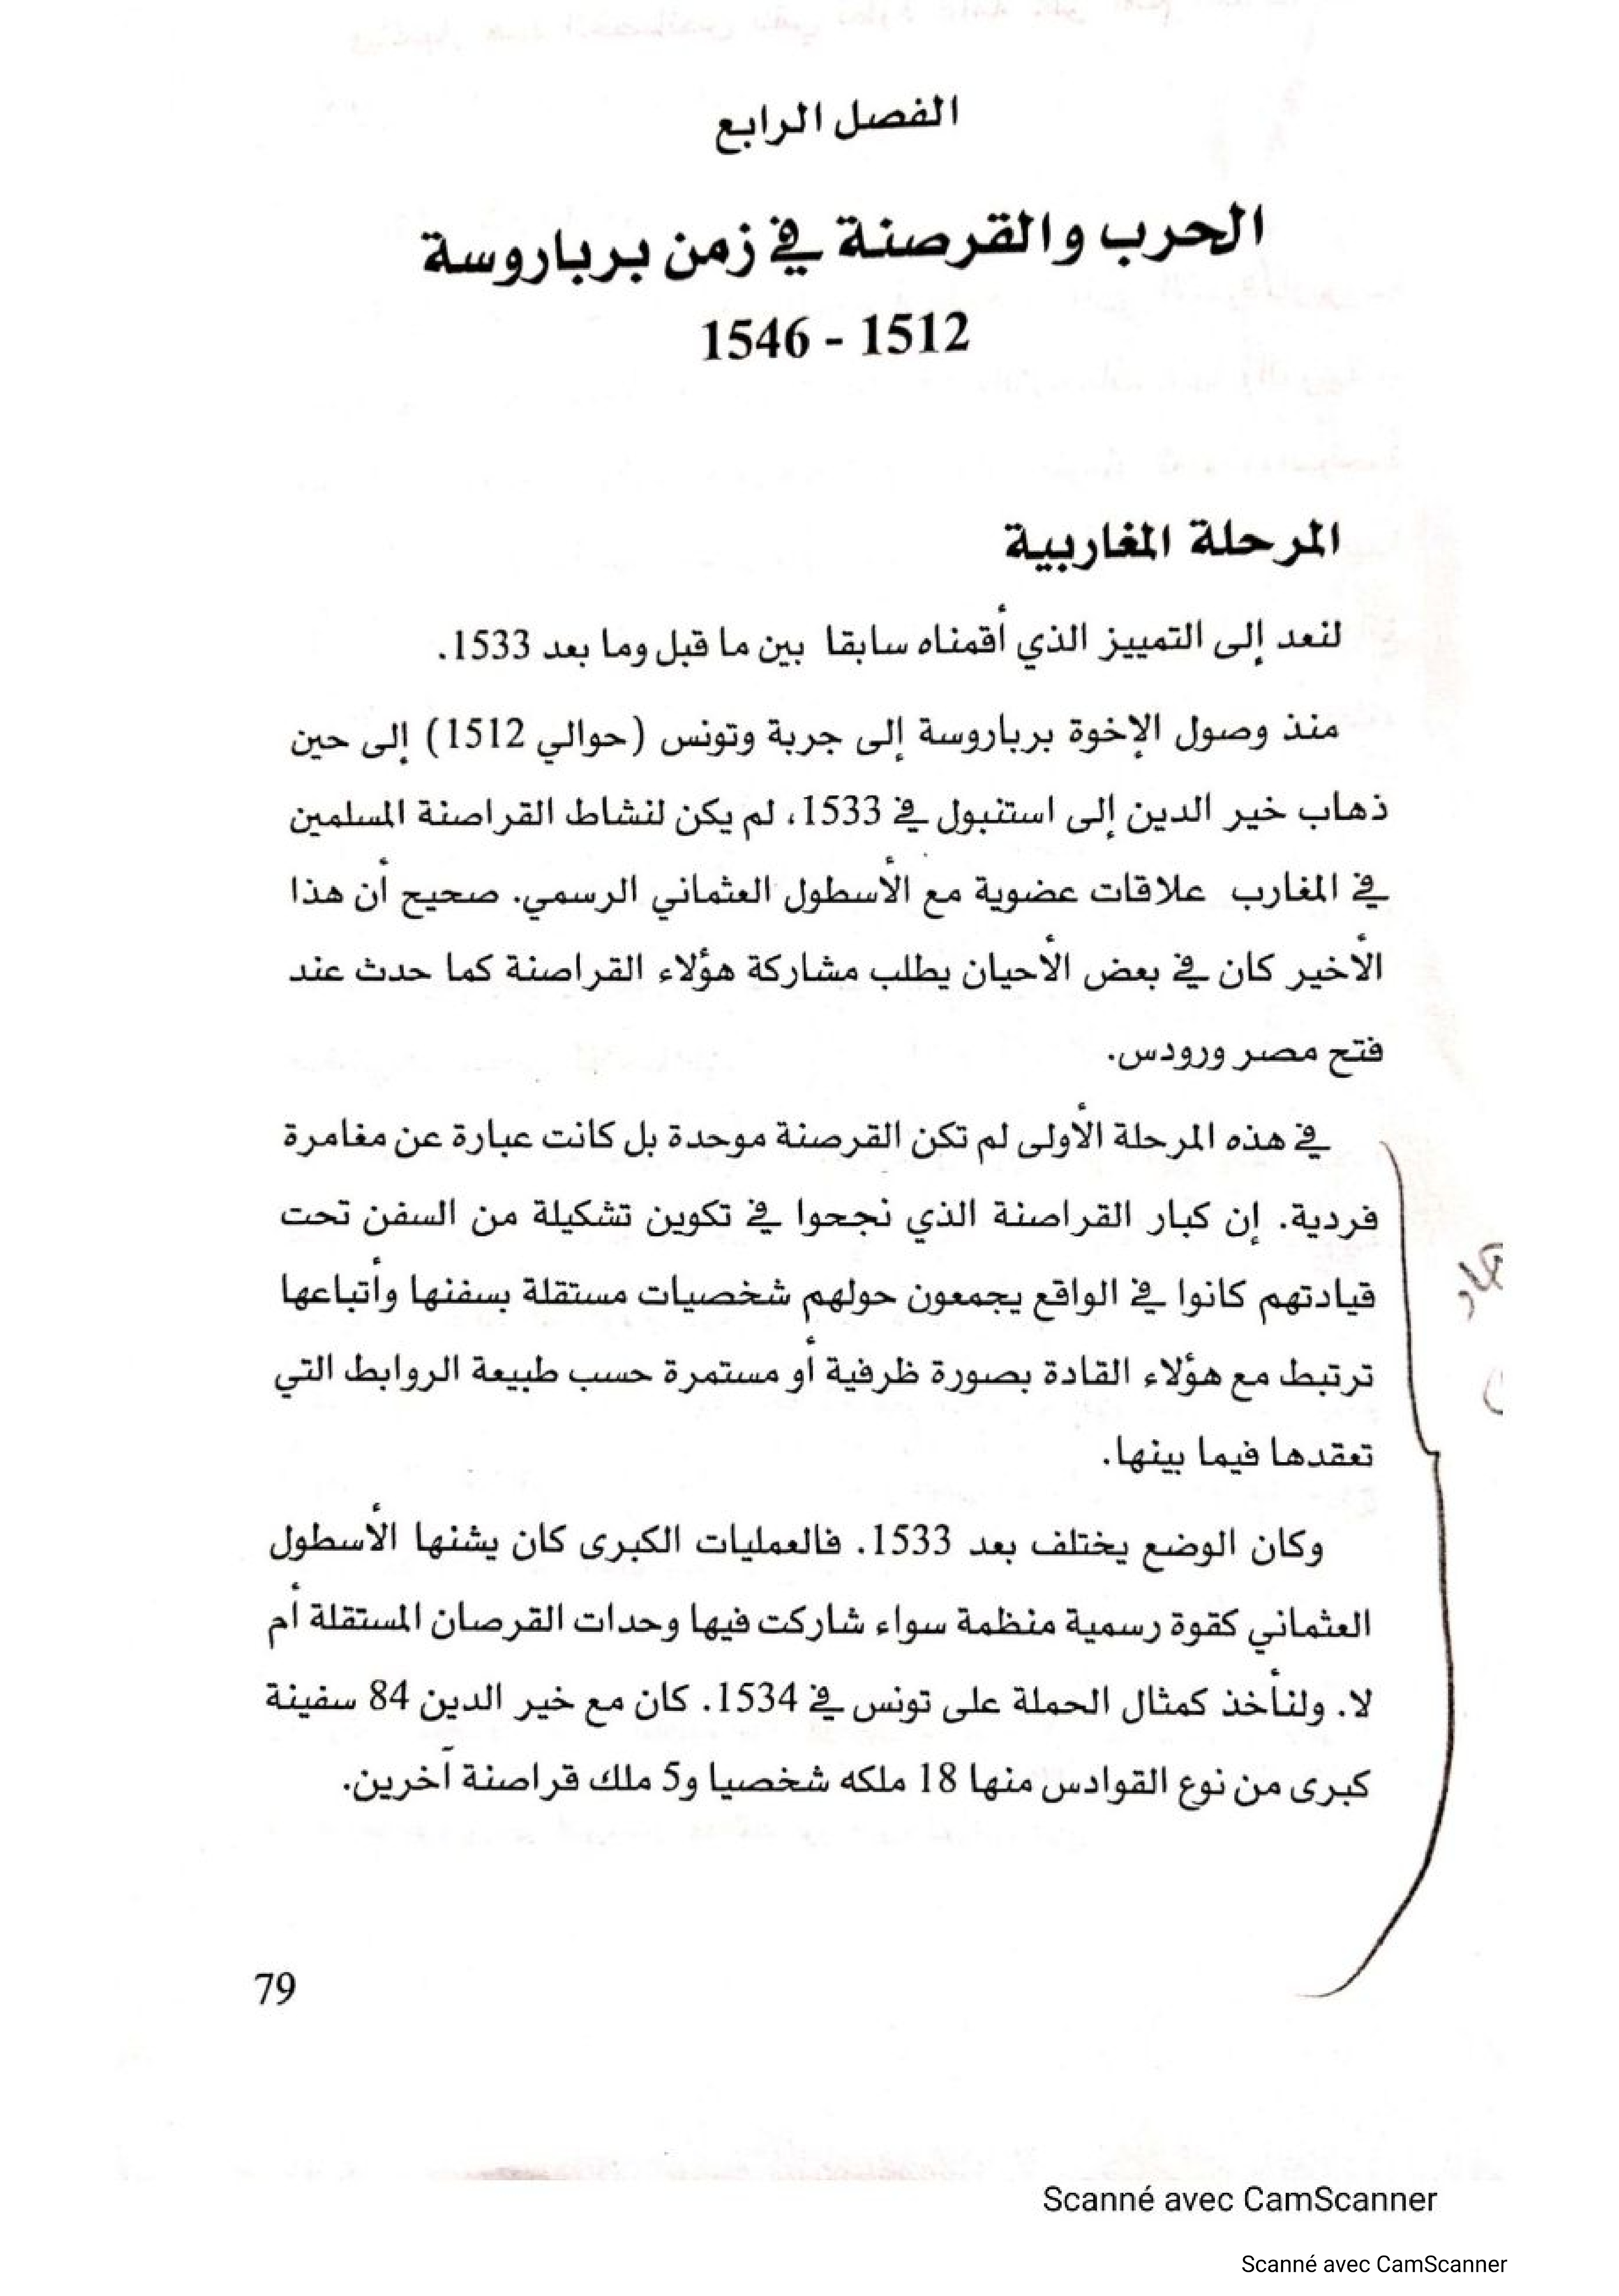 الفصل الرابع
الحرب والقرصنة في زمن برباروسة
1512 - 1546
المرحلة المغاربية
لنعد إلى التمييز الذي أقمناه سابقا بين ما قبل وما بعد 1533.
منذ وصول الإخوة برباروسة إلى جربة وتونس (حوالي 1512) إلى حين
ذهاب خير الدين إلى استنبول في 1533، لم يكن لنشاط القراصنة المسلمين
في المغارب علاقات عضوية مع الأسطول العثماني الرسمي. صحيح أن هذا
الأخير كان في بعض الأحيان يطلب مشاركة هؤلاء القراصنة كما حدث عند
فتح مصر ورودس.
في هذه المرحلة الأولى لم تكن القرصنة موحدة بل كانت عبارة عن مغامرة
فردية. إن كبار القراصنة الذي نجحوا في تكوين تشكيلة من السفن تحت
قيادتهم كانوا في الواقع يجمعون حولهم شخصيات مستقلة بسفنها وأتباعها
ترتبط مع هؤلاء القادة بصورة ظرفية أو مستمرة حسب طبيعة الروابط التي
تعقدها فيما بينها.
وكان الوضع يختلف بعد 1533. فالعمليات الكبرى كان يشنها الأسطول
العثماني كقوة رسمية منظمة سواء شاركت فيها وحدات القرصان المستقلة أم
لا. ولنأخذ كمثال الحملة على تونس في 1534. كان مع خير الدين 84 سفينة
كبرى من نوع القوادس منها 18 ملكه شخصيا و5 ملك قراصنة آخرين.
79
Scanné avec CamScanner
Scanné avec CamScanner